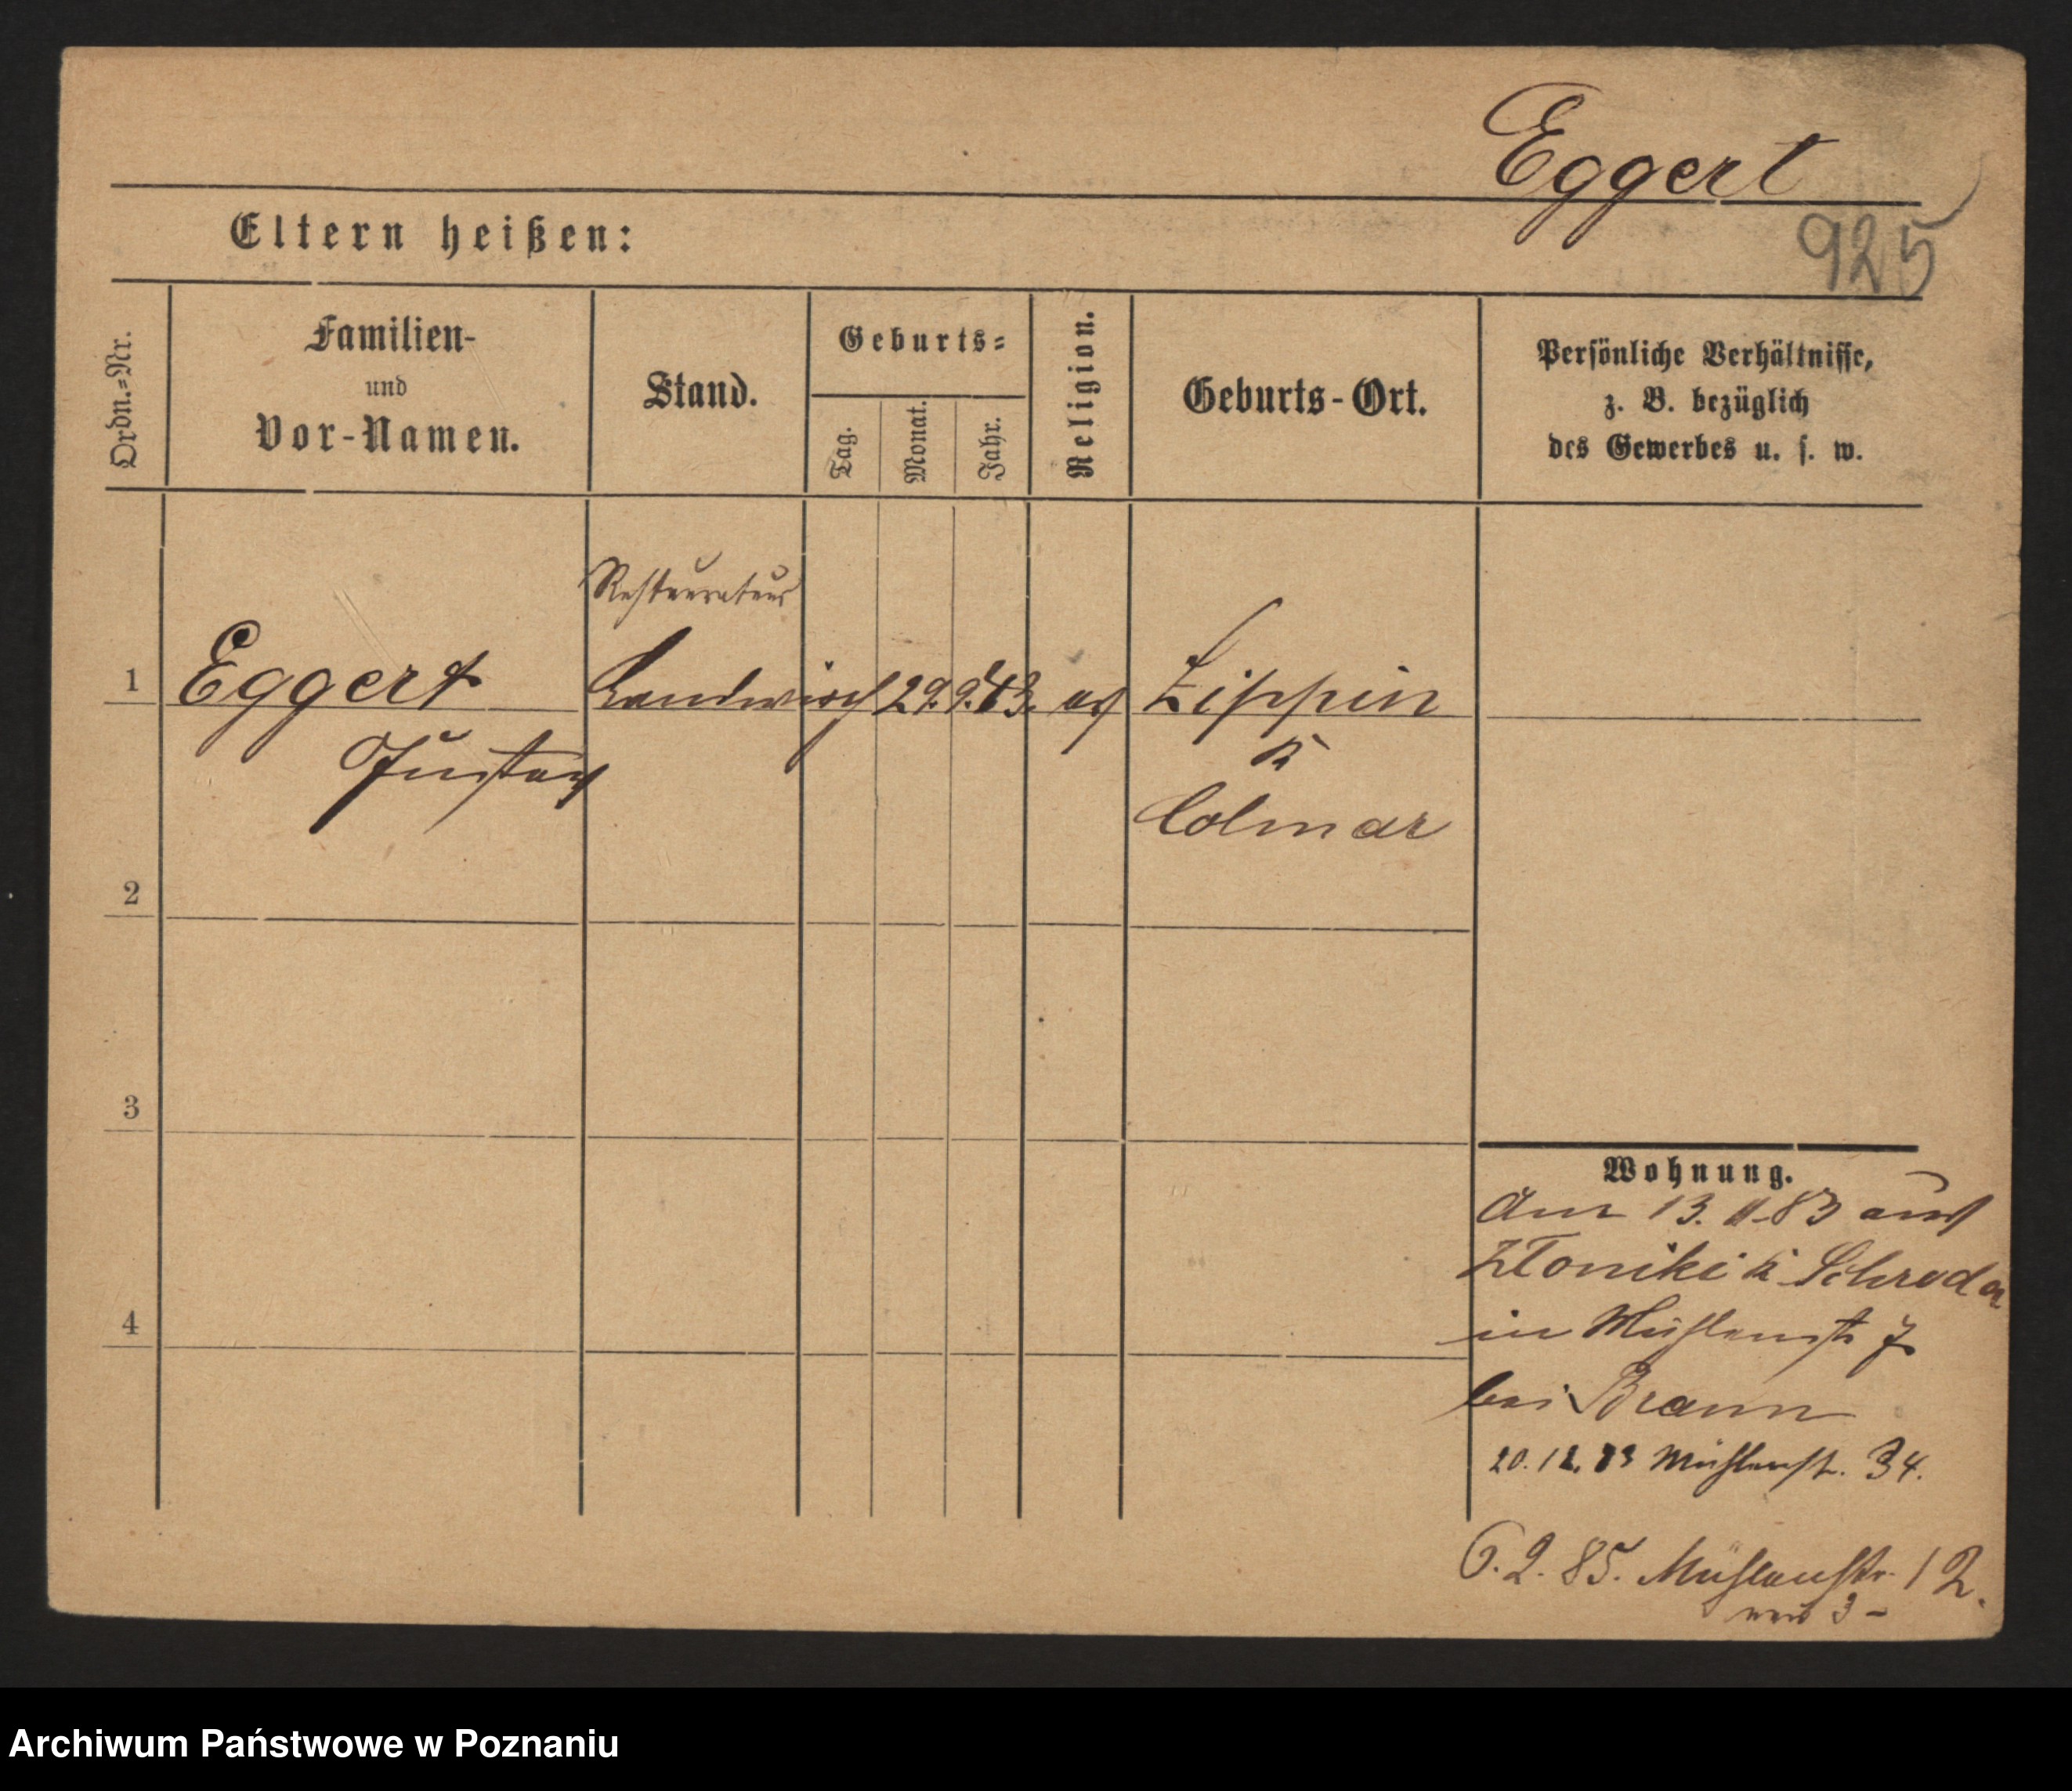 Eggert
925
Eltern heißen:
Ordn.=Nr.
Familien-
und
Vor-Namen.
Stand.
Geburts=
Tag.
Monat.
Jahr.
Religion.
Geburts-Ort.
Persönliche Verhältnisse,
z. B. bezüglich
des Gewerbes u. s. w.
Restaurateur
1
Eggert
Landwirth
29.
9.
43.
ev
Zippin
K
Gustav
Colmar
2
3
4
Wohnung.
Am 13. 11. 83 aus
Złoniki K Schroda
in Mühlenstr 7
bei Braun
20. 12. 83 Mühlenstr. 34.
6. 2. 85. Mühlenstr. 12.
3 –
Archiwum Państwowe w Poznaniu